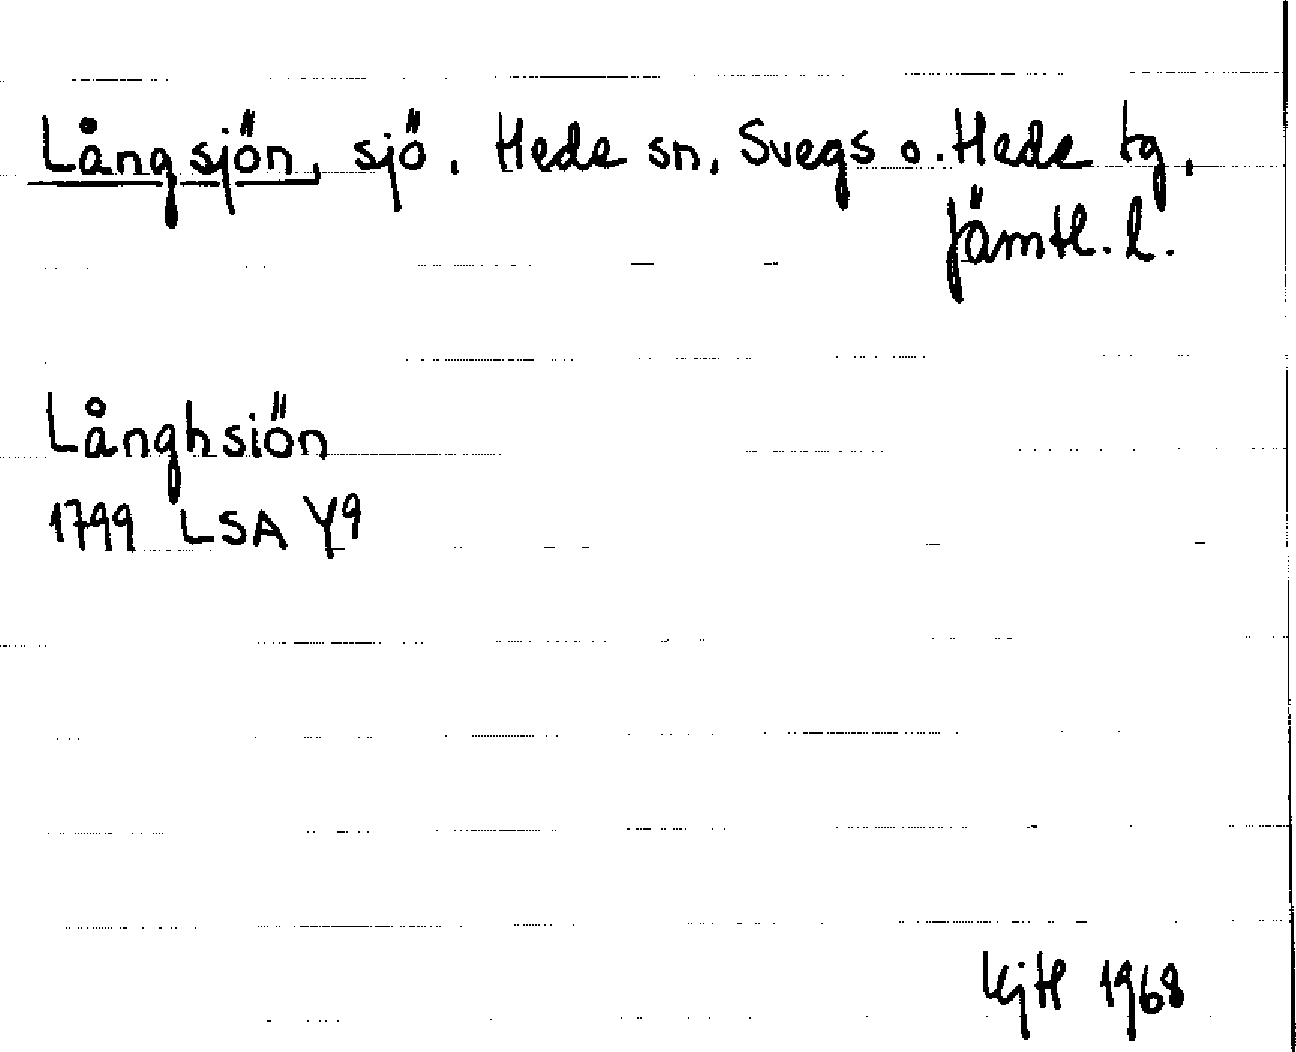 Långsjön, sjö. Hede sn, Svegs o. Hede tg,
Jämtl. l.
Långhsiön
1799 LSA Y9
1968